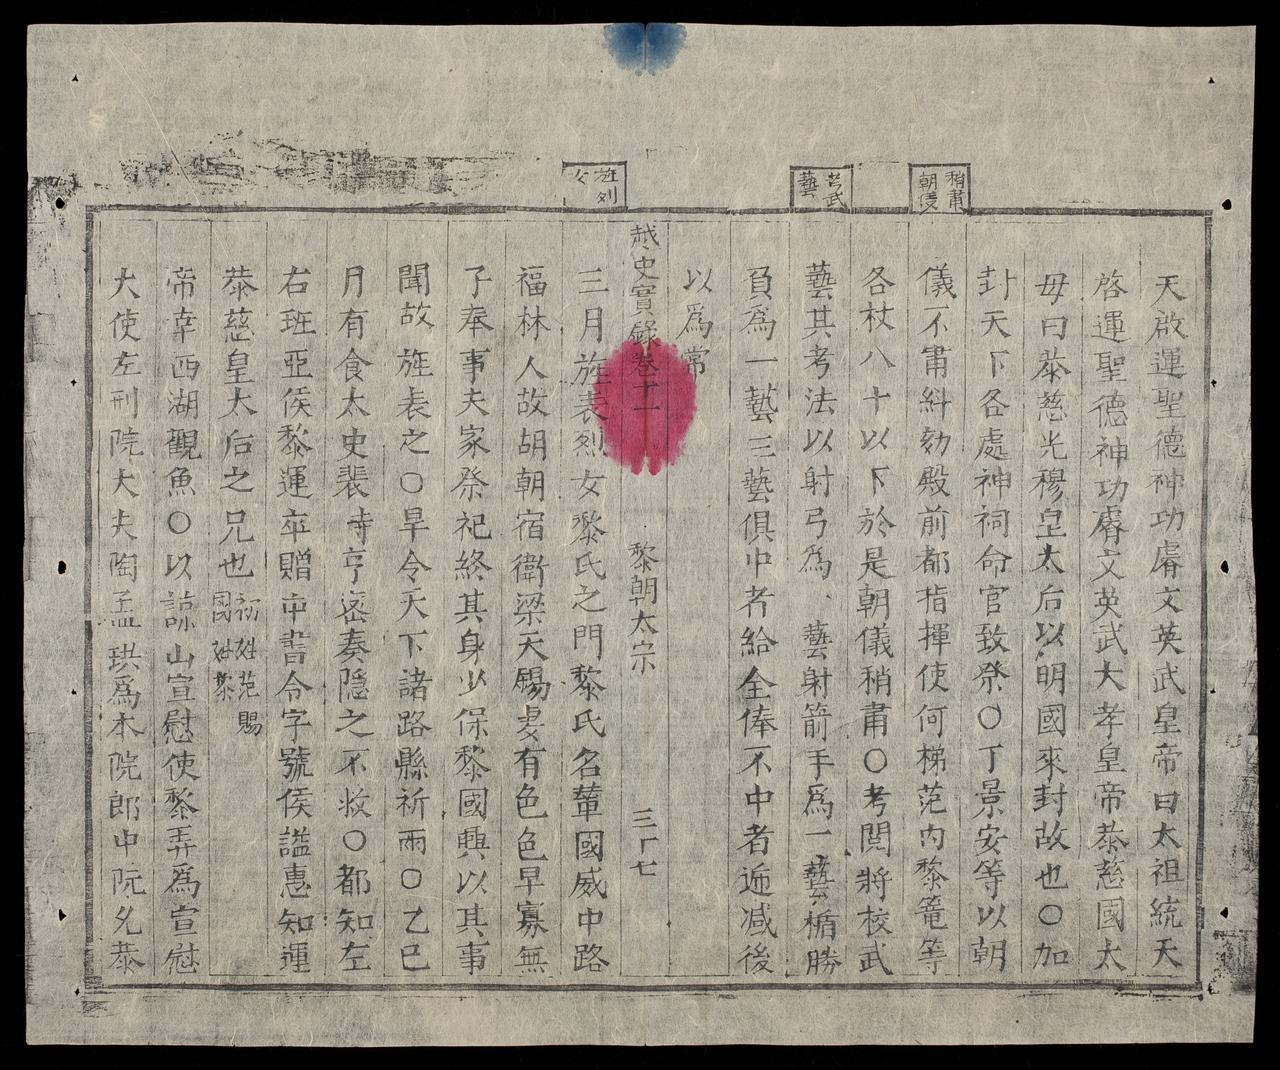 稍肅
朝儀
考武
藝
旌列
女
天啟運聖德神功睿文英武皇帝曰太祖統天
啓運聖德神功睿文英武大孝皇帝恭慈國太
母曰恭慈光穆皇太后以明國來封故也〇加
封天下各處神祠命官致祭〇丁景安等以朝
儀不肅糾劾殿前都指揮使何梯范內黎篭等
各杖八十以下於是朝儀稍肅〇考閲將校武
藝其考法以射弓爲一藝射箭手爲一藝楯勝
負爲一藝三藝俱中者給全俸不中者遞减後
以爲常
越史實錄卷十一 黎朝太宗 三十七
三月旌表烈女黎氏之門黎氏名輦國威中路
福林人故胡朝宿衛梁天賜妻有色色早寡無
子奉事夫家祭祀終其身少保黎國興以其事
聞故旌表之〇旱令天下諸路縣祈雨〇乙巳
月有食太史裴時亨密奏隱之不救〇都知左
右班亞侯黎運卒贈中書令字號侯謚惠知運
恭慈皇太后之兄也初姓范賜
國姓黎
帝幸西湖觀魚〇以諒山宣慰使黎弄爲宣慰
大使左刑院大夫陶孟珙爲本院郎中阮允恭